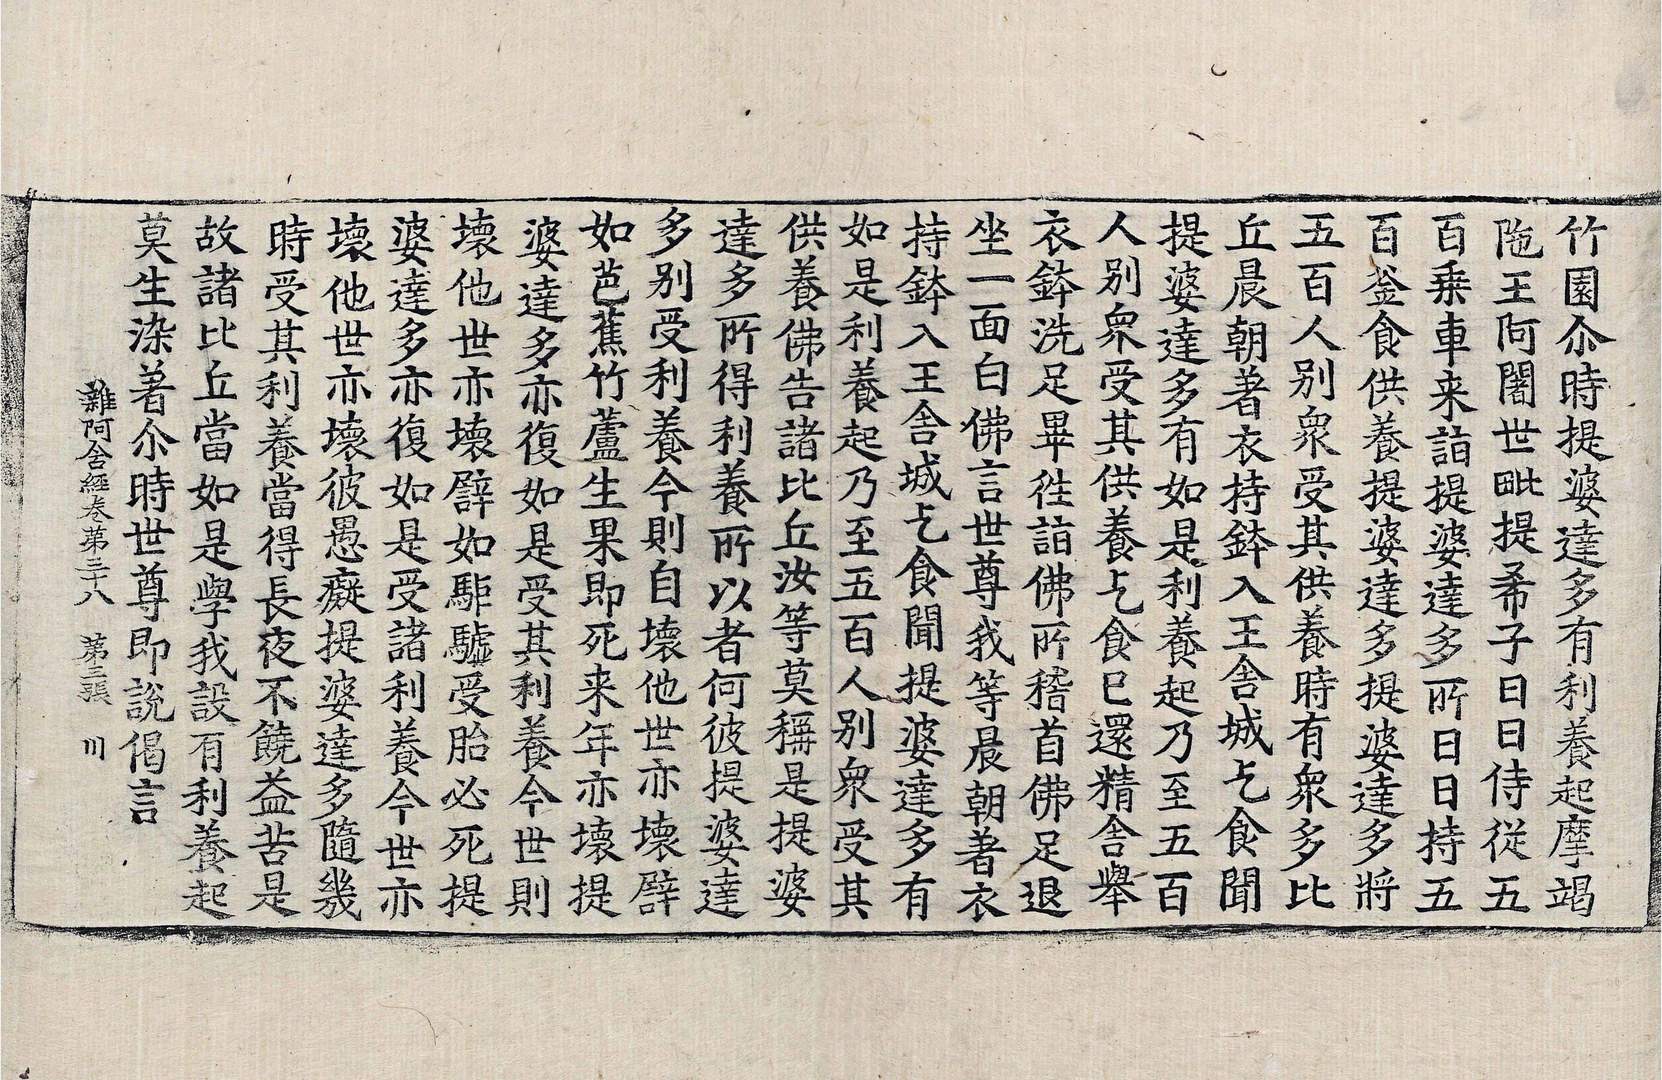 竹園尒時提婆達多有利養起摩竭
陁王阿闍世毗提希子日日侍從五
百乗車来詣提婆達多所日日持五
百釜食供養提婆達多提婆達多將
五百人別衆受其供養時有衆多比
丘晨朝著衣持鉢入王舍城乞食聞
提婆達多有如是利養起乃至五百
人別衆受其供養乞食已還精舍舉
衣鉢洗足畢往詣佛所稽首佛足退
坐一面白佛言世尊我等晨朝著衣
持鉢入王舍城乞食聞提婆達多有
如是利養起乃至五百人別衆受其
供養佛告諸比丘汝等莫稱是提婆
達多所得利養所以者何彼提婆達
多別受利養今則自壞他世亦壞譬
如芭蕉竹蘆生果即死来年亦壞提
婆達多亦復如是受其利養今世則
壞他世亦壞譬如駏驉受胎必死提
婆達多亦復如是受諸利養今世亦
壞他世亦壞彼愚癡提婆達多隨幾
時受其利養當得長夜不饒益苦是
故諸比丘當如是學我設有利養起
莫生染著尒時世尊即說偈言
雜阿含經卷第三十八 第三張 川